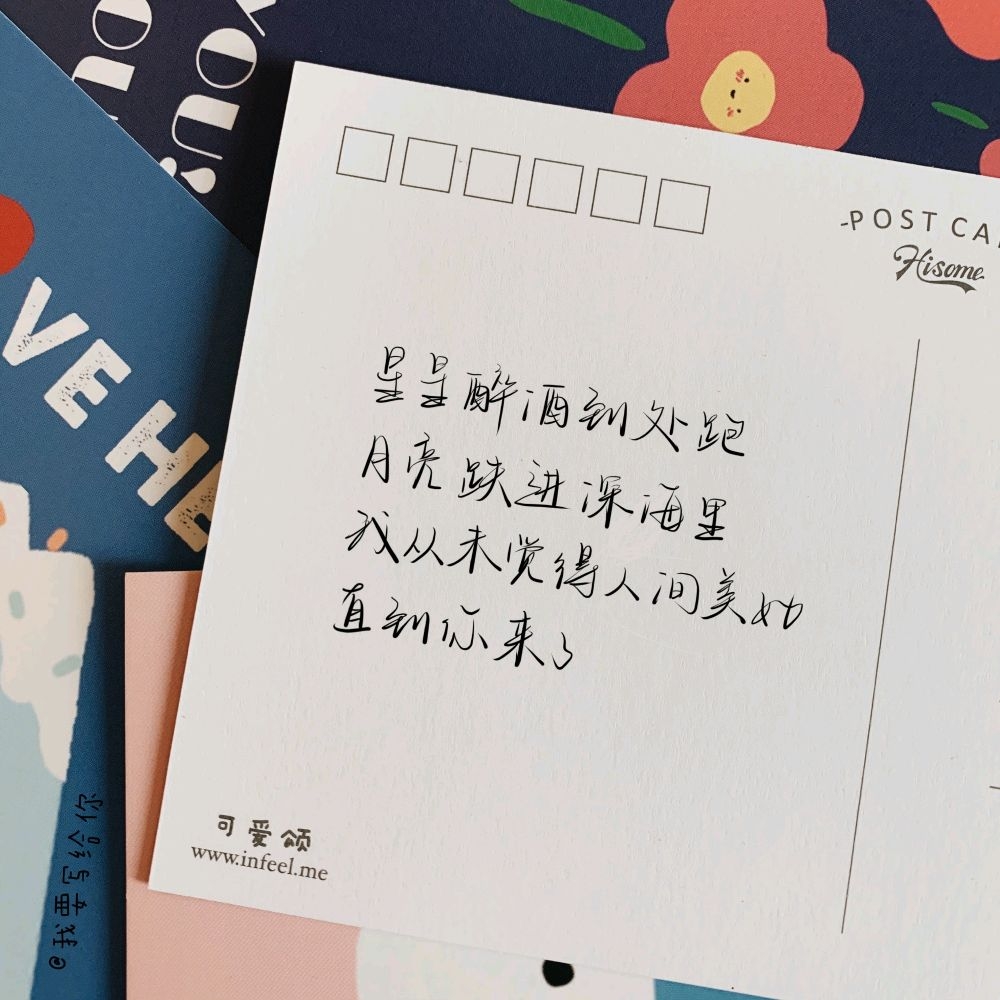 YOU!
OU
VE HE
-POST CA
Hisome
星星醉酒到处跑
月亮跌进深海里
我从未觉得人间美好
直到你来了
可爱颂
www.infeel.me
@我要写给你